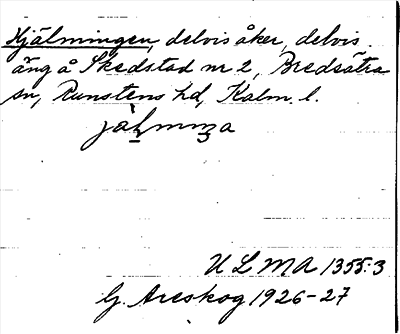 Hjälmingen, delvis åker, delvis
äng å Skedstad nr 2, Bredsätra
sn, Runstens hd, Kalm. l.
ULMA 1355:3
G. Areskog 1926-27